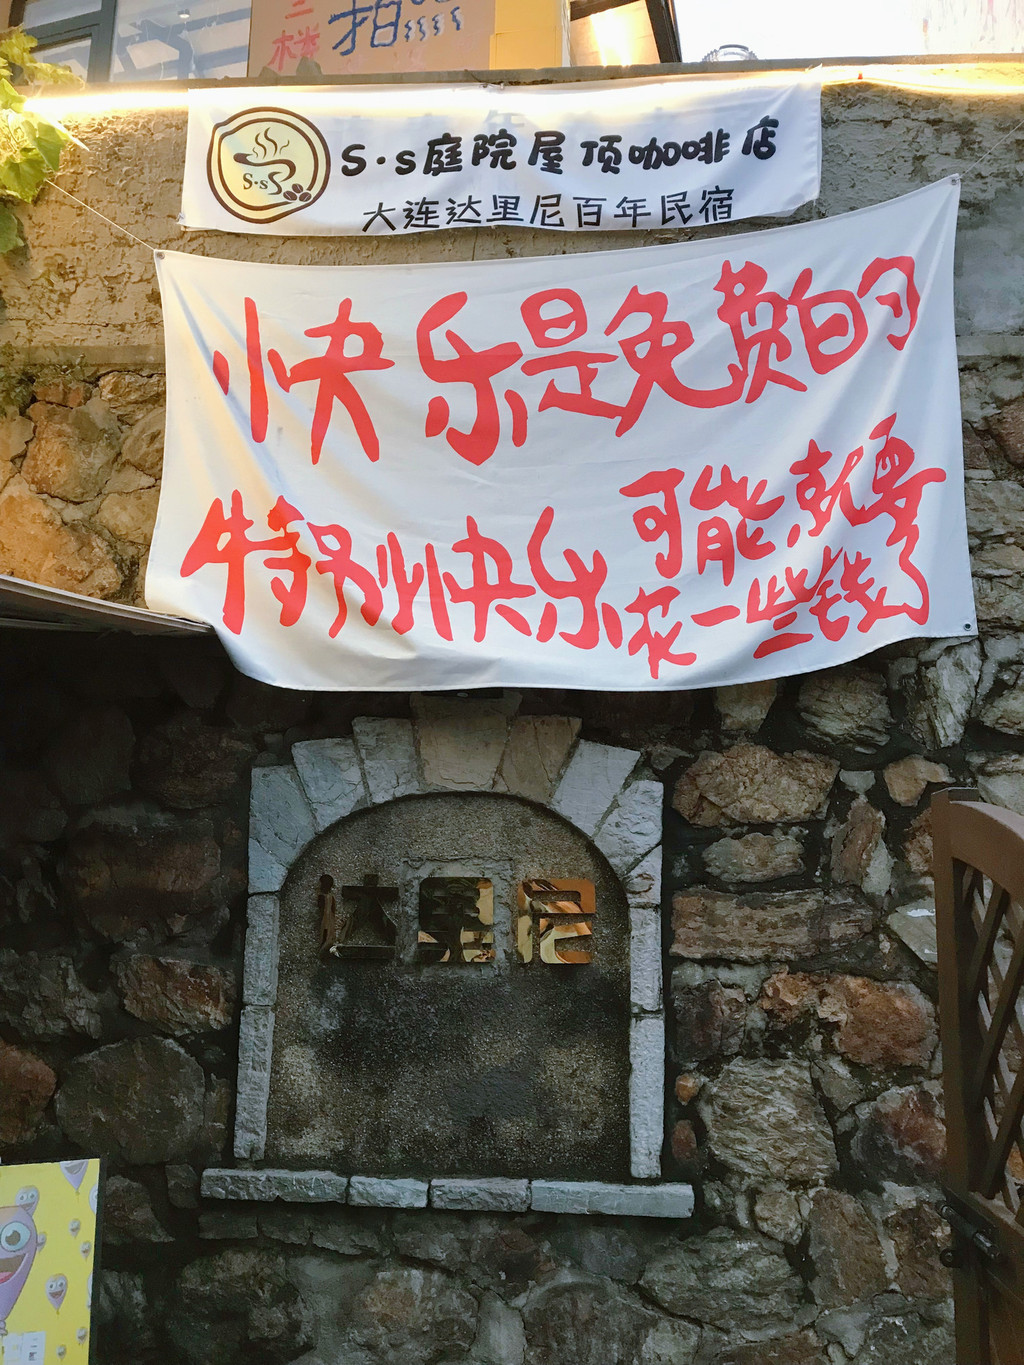 三楼 拍
S·s
S·s庭院屋顶咖啡店
大连达里尼百年民宿
快乐是免费的
特别快乐可能就要
花一些钱了
达里尼